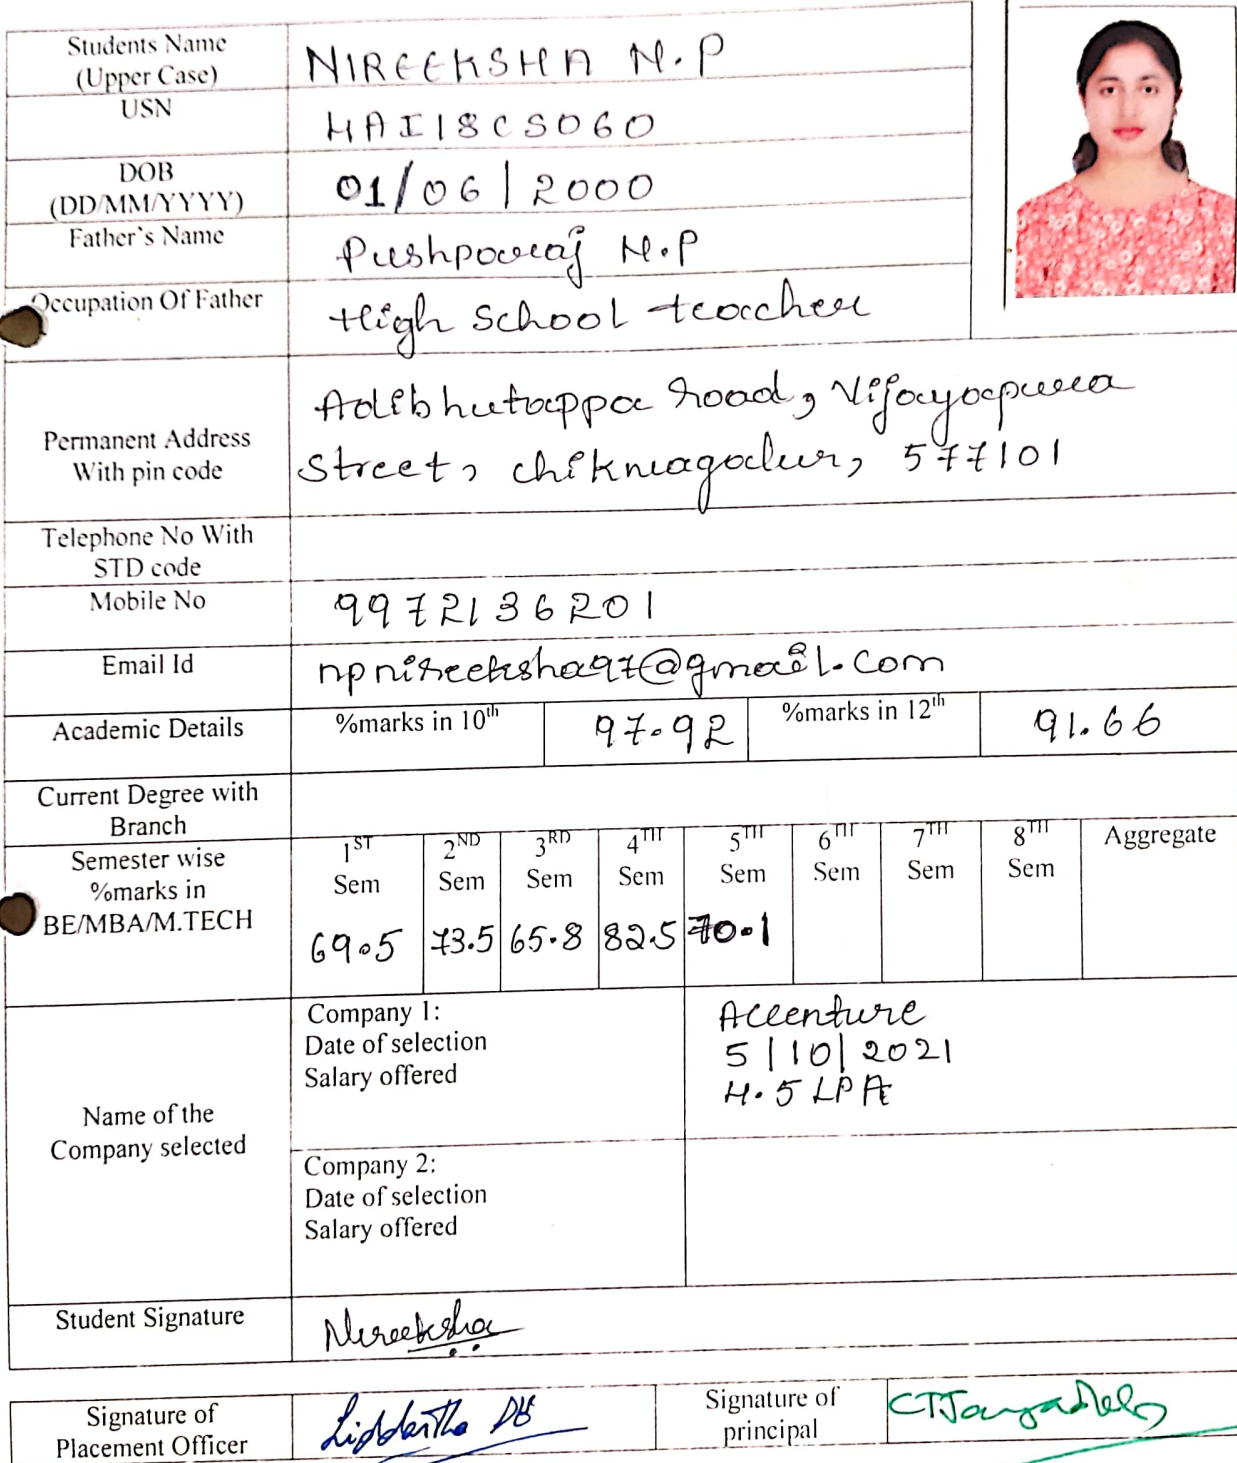 Students Name
(Upper Case)
NIREEKSHA N.P
USN
4AI18CS060
DOB
(DD/MM/YYYY)
01/06/2000
Father's Name
Pushparaj N.P
Occupation Of Father
High School teacher
Permanent Address
With pin code
Adibhutappa road, Vijayapura
Street, chikmagalur, 577101
Telephone No With
STD code
Mobile No
9972136201
Email Id
npnireeksha97@gmail.com
Academic Details
%marks in 10th
97.92
%marks in 12th
91.66
Current Degree with
Branch
Semester wise
%marks in
BE/MBA/M.TECH
1ST 2ND 3RD 4TH 5TH 6TH 7TH 8TH Aggregate
Sem Sem Sem Sem Sem Sem Sem Sem
69.5 73.5 65.8 82.5 70.1
Name of the
Company selected
Company 1:
Date of selection
Salary offered
Accenture
5/10/2021
4.5 LPA
Company 2:
Date of selection
Salary offered
Student Signature
Nireeksha
Signature of
Placement Officer
Signature of
principal